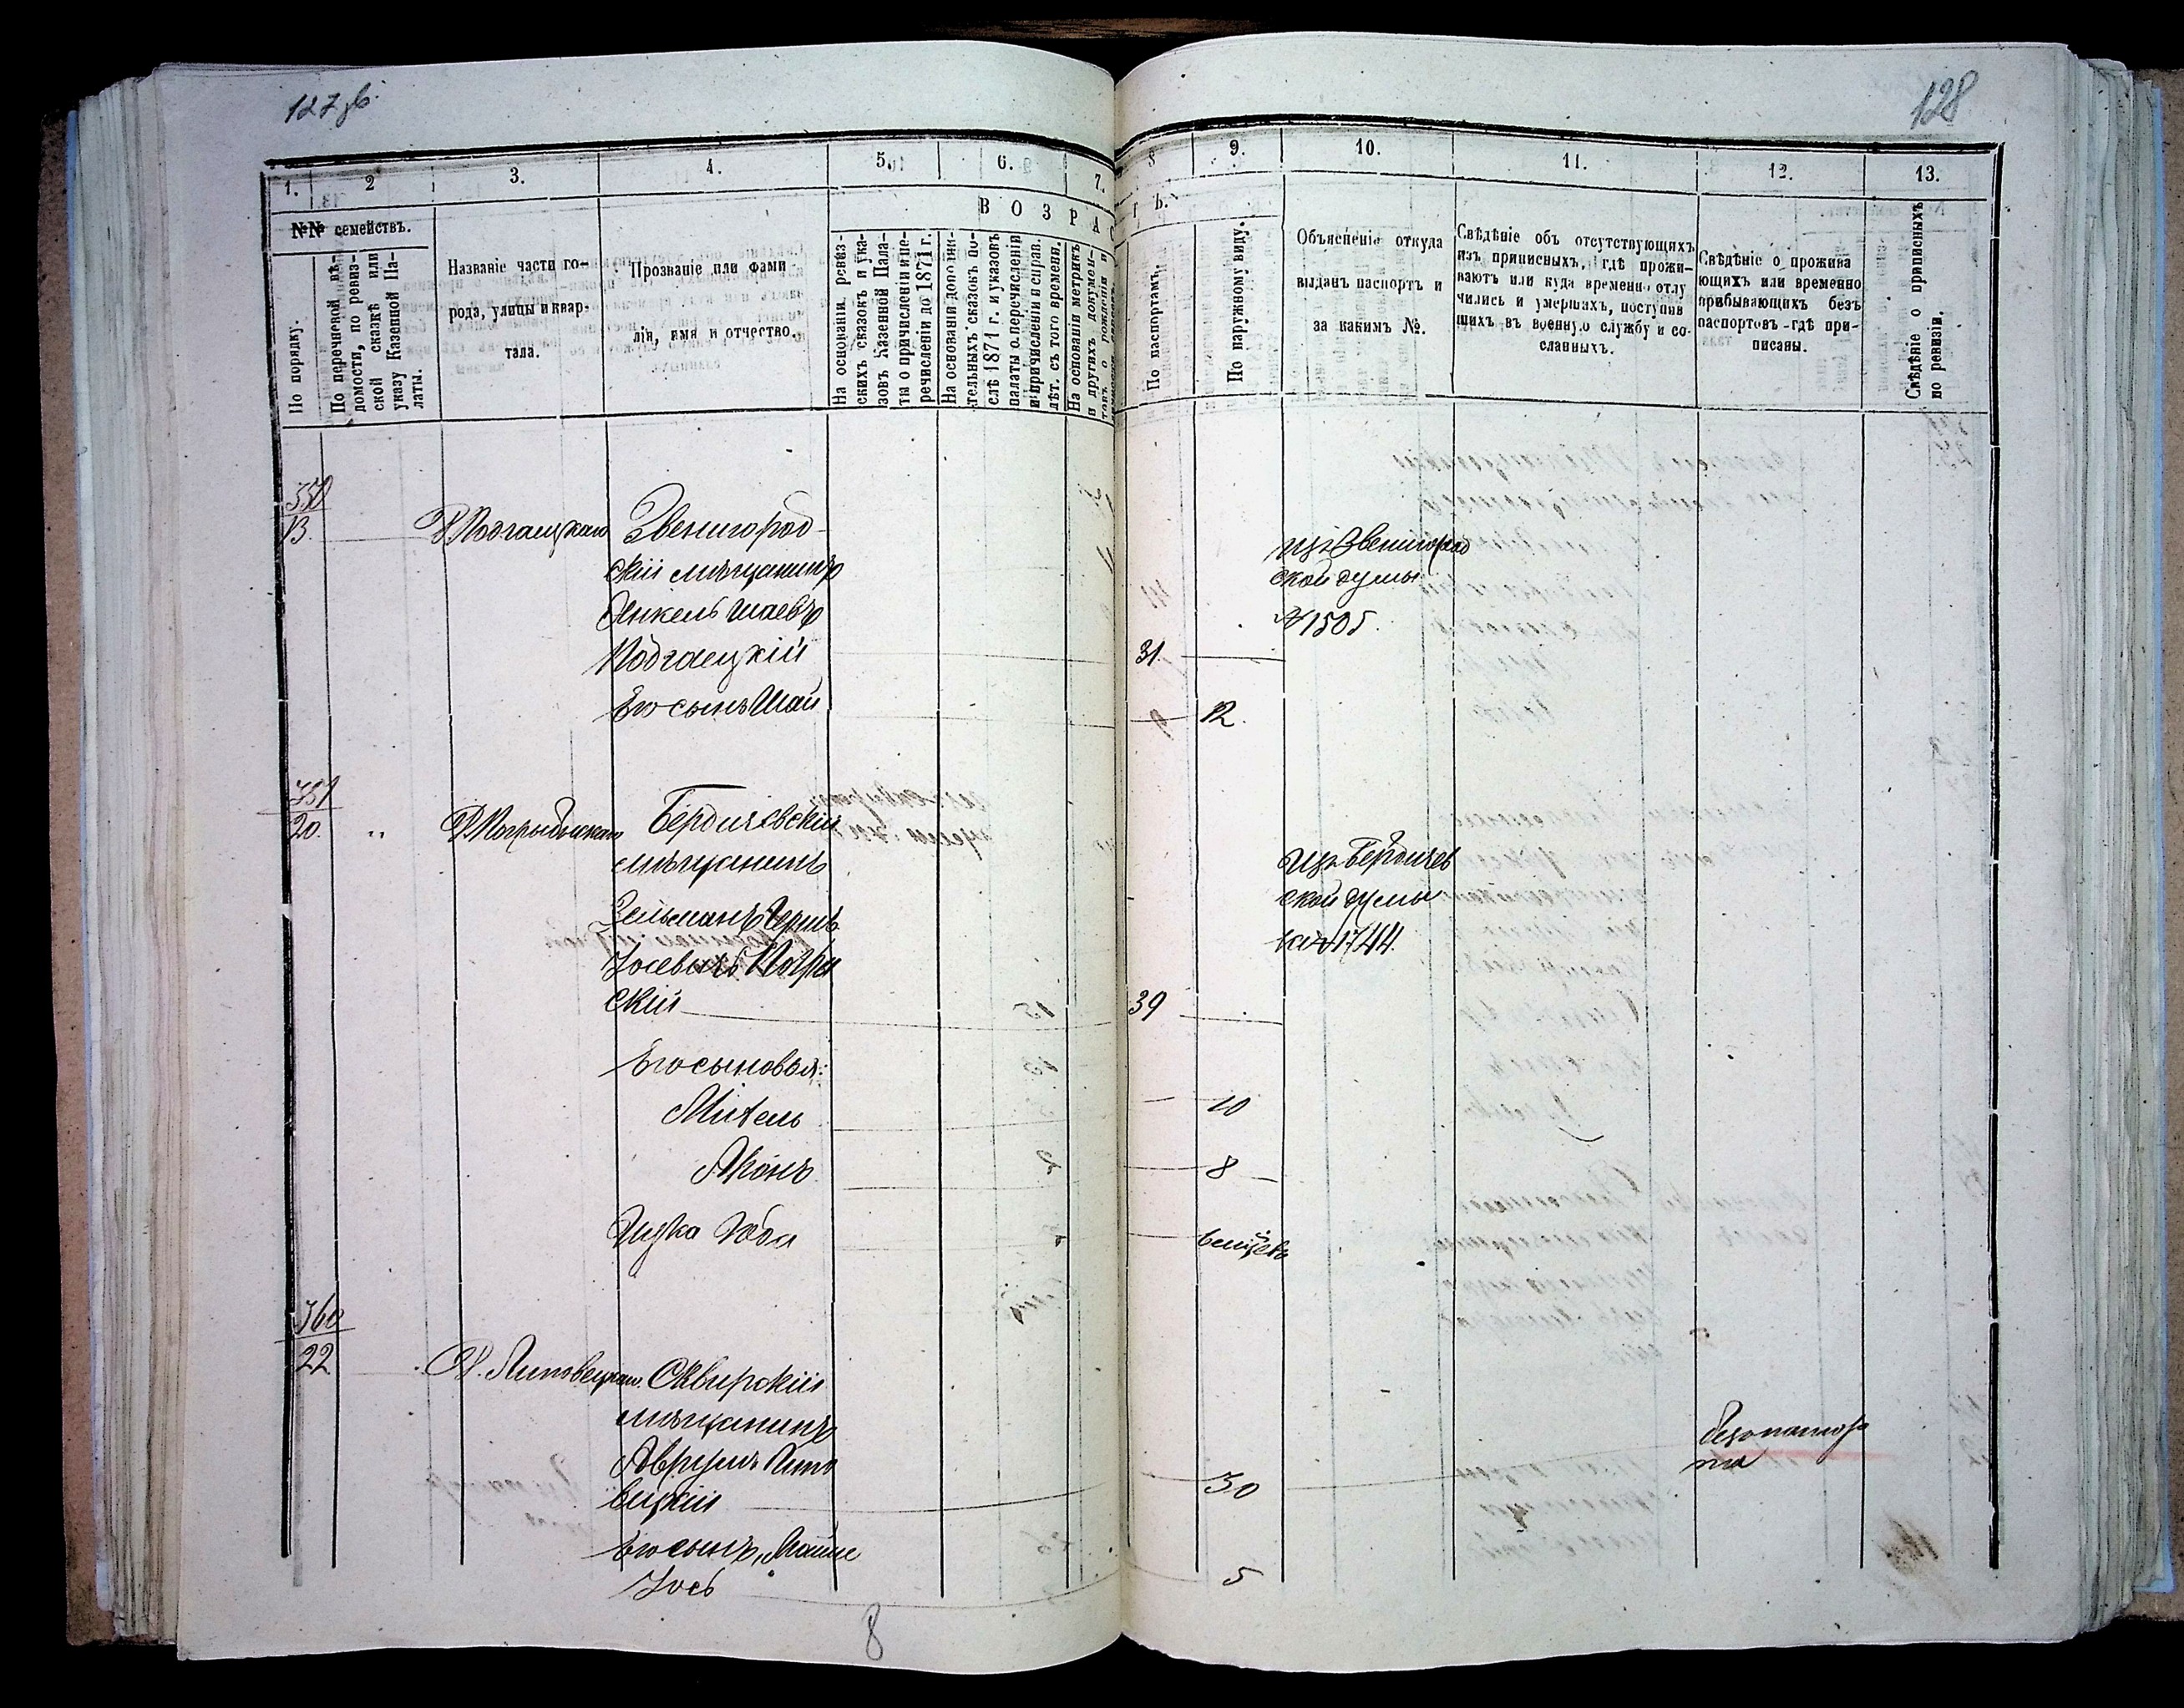 127 об.
128
1.
2
3.
4.
5.
6.
7.
8
9.
10.
11.
12.
13.
№№ семействъ.
ВОЗРАСТЪ.
По порядку.
По перечневой вѣ-
домости, по ревиз-
ской сказкѣ или
указу Казенной Па-
латы.
Названіе части го-
рода, улицы и квар-
тала.
Прозваніе или фами-
лія, имя и отчество.
На основаніи ревиз-
скихъ сказокъ и ука-
зовъ Казенной Пала-
ты о причисленіи и пе-
речисленіи до 1871 г.
На основаніи дополни-
тельныхъ сказокъ по-
слѣ 1871 г. и указовъ
палаты о перечисленіи
и причисленіи и справ.
лѣт. съ того времени.
На основаніи метрикъ
и другихъ докумен-
товъ о рожденіи и
По паспортамъ.
По наружному виду.
Объясненіе откуда
выданъ паспортъ и
за какимъ №.
Свѣдѣніе объ отсутствующихъ
изъ приписныхъ, гдѣ прожи-
ваютъ или куда временно отлу
чились и умершихъ, поступив
шихъ въ военную службу и со-
сланныхъ.
Свѣдѣніе о прожива
ющихъ или временно
прибывающихъ безъ
паспортовъ - гдѣ при-
писаны.
Свѣдѣніе о приписныхъ
по ревизіи.
13.
Подгаецкаго
Звенигород-
скій мѣщанинъ
Янкель Шаевъ
Подгаецкій
31.
изъ Звенигород
ской думы
№ 1505.
Его сынъ Шая
12.
351
20.
"
Бердичевскій
мѣщанинъ
Зельманъ Герш
Іосевичъ
скій
39
изъ Бердичев
ской думы
за № 1744
Его сыновья:
10
8
360
22
Липовецкаго
Сквирскій
мѣщанинъ
Аврумъ Липо
вецкій
30
безъ паспор
та
Его сынъ, Мошке
Іось
5
8